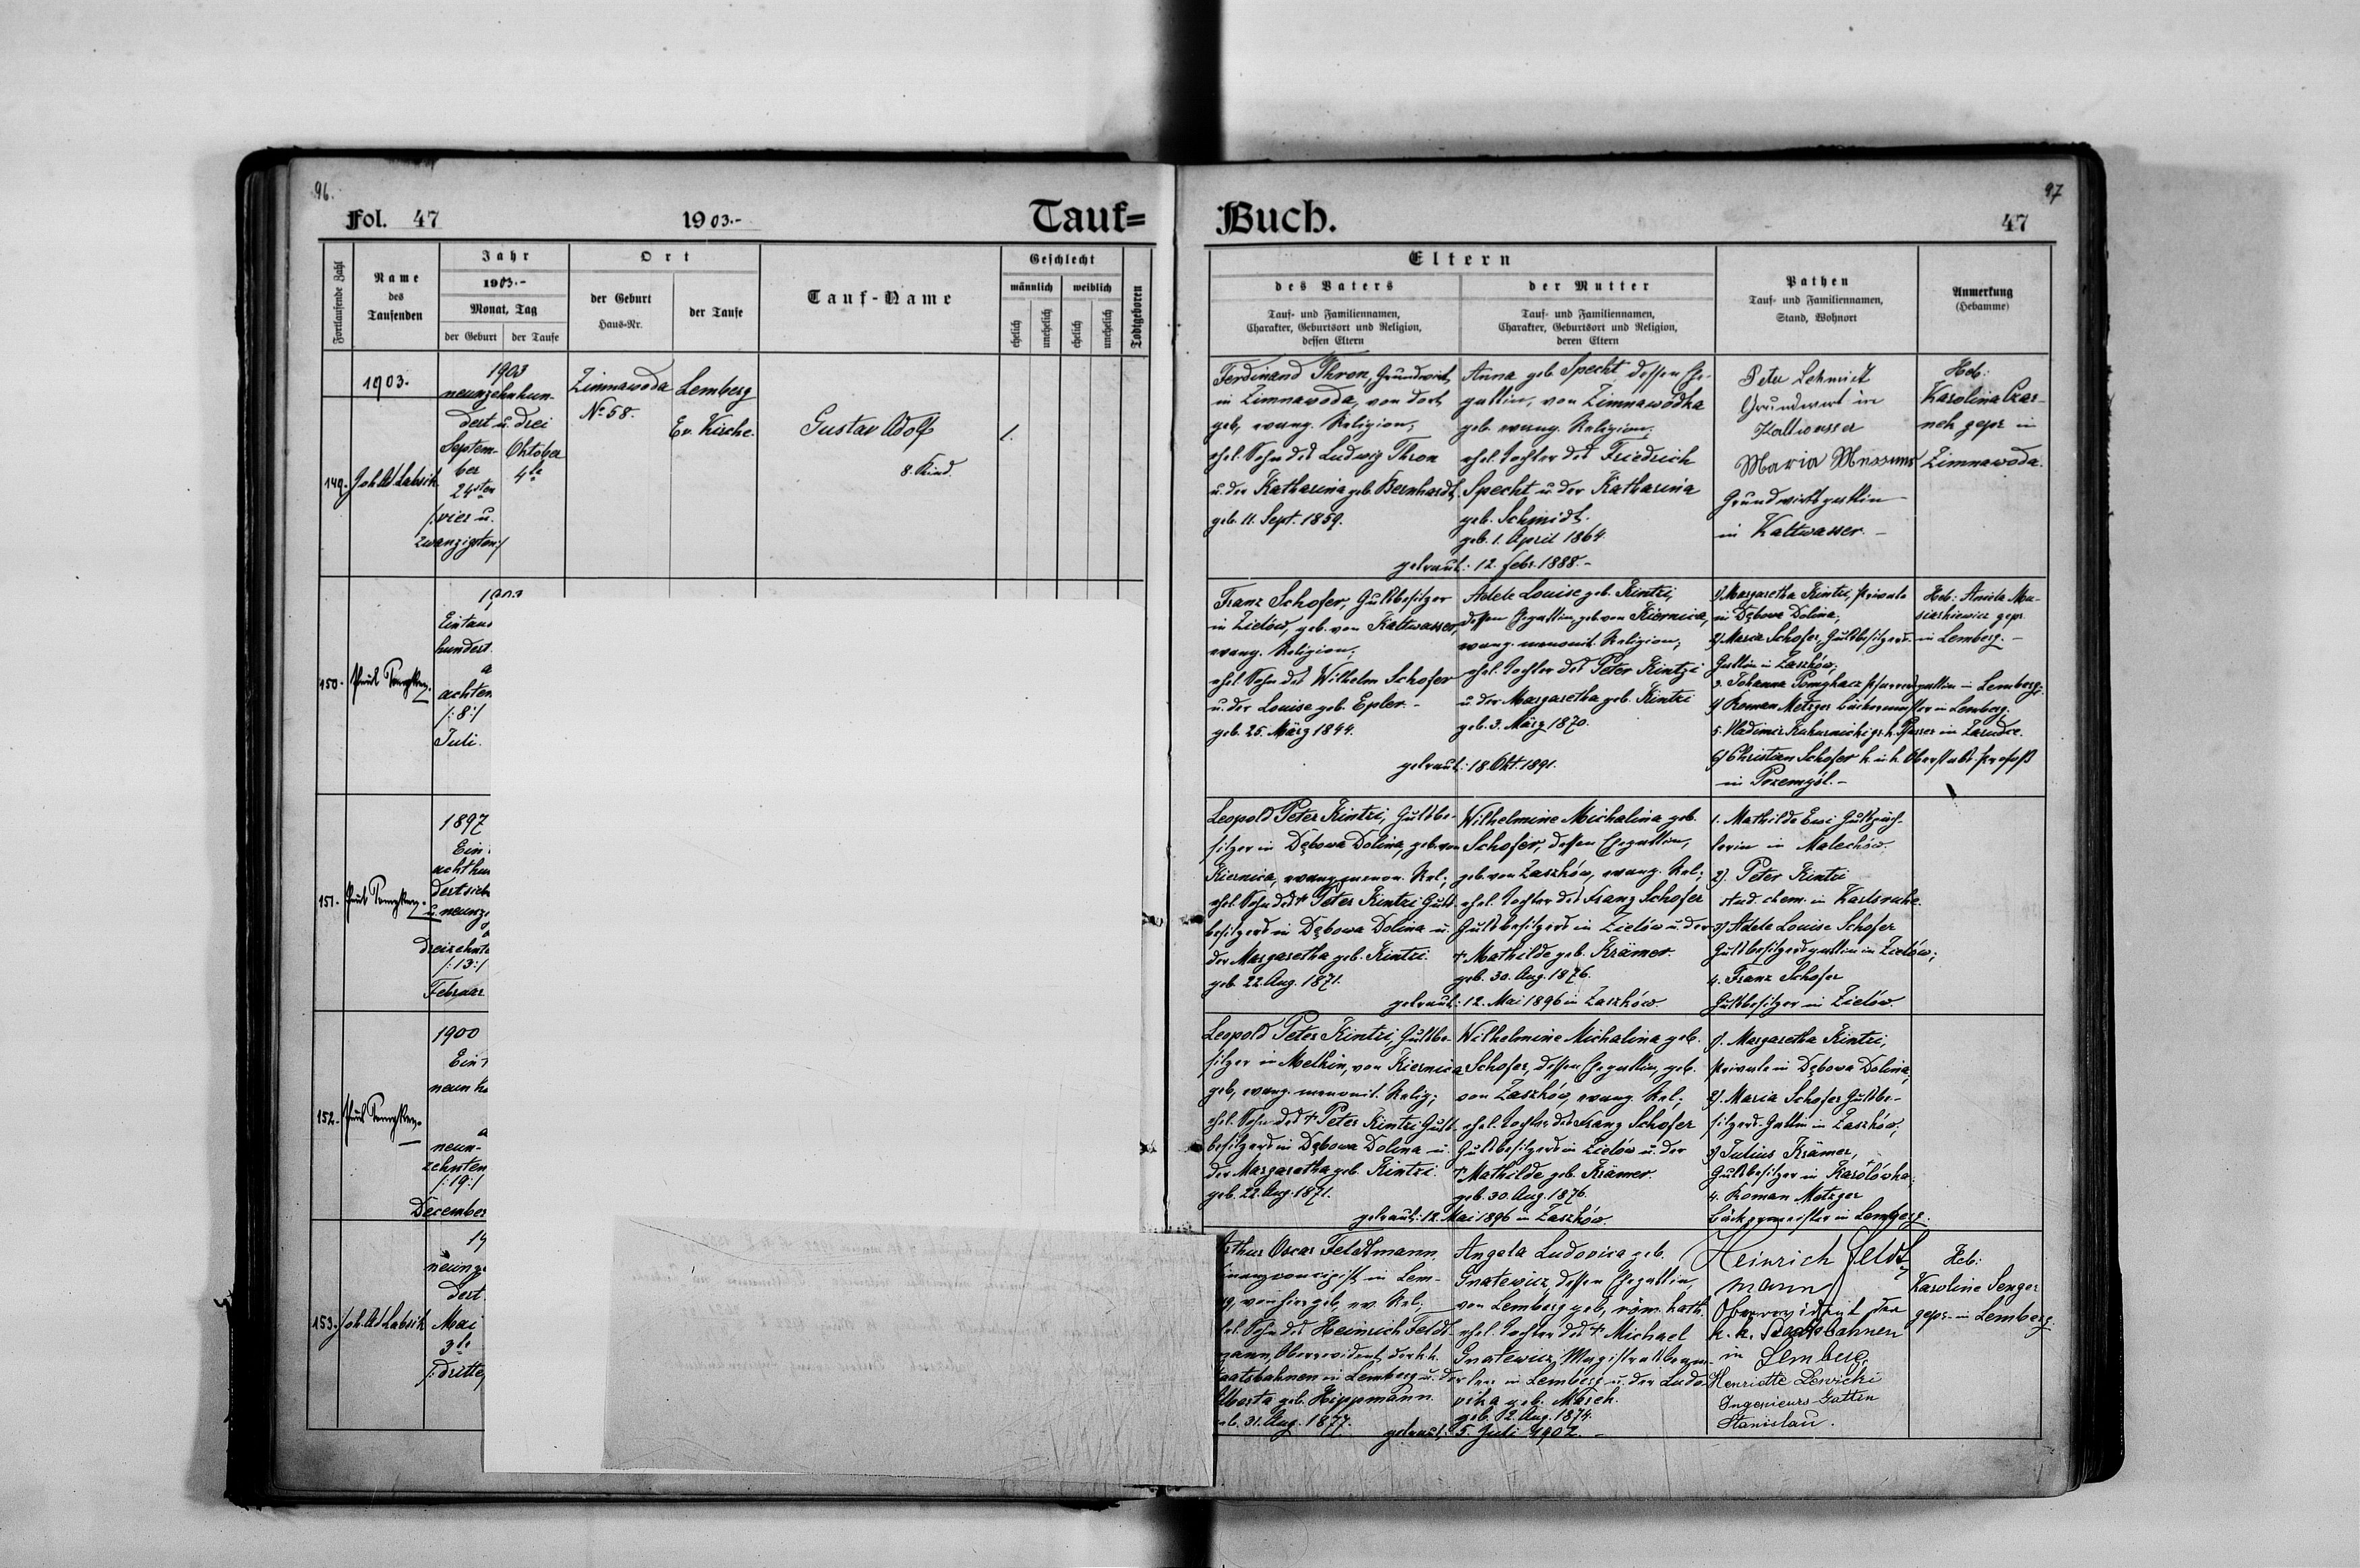 96.
Fol. 47
1903.-
Tauf=
Fortlaufende Zahl
Name
des
Taufenden
Jahr
1903.-
Monat, Tag
der Geburt
der Taufe
Ort
der Geburt
Haus-Nr.
der Taufe
Tauf-Name
Geschlecht
männlich
weiblich
ehelich
unehelich
ehelich
unehelich
Todtgeboren
1903.
149. Joh. Ad Labsik
1903
neunzehnhun-
dert u. drei
Septem-
ber
24sten
/:vier u.
zwanzigsten:/
Oktober
4te
Zimnawoda
No 58.
Lemberg
Ev. Kirche.
Gustav Adolf
8. Kind.
1.
150.
1903
Eintaus
hundert
achten
/:8:/
Juli.
151.
1897
Ein
achthun
dertsieb
u. neunzi
dreizehnte
/:13:/
Februar
152.
1900
Ein
neunh
neun-
zehnten
/:19:/
December
153. Joh. Ad Labsik
19
neunze
dert
Mai
3te
/:dritte
97
Buch.
47
Eltern
des Vaters
Tauf- und Familiennamen,
Charakter, Geburtsort und Religion,
dessen Eltern
der Mutter
Tauf- und Familiennamen,
Charakter, Geburtsort und Religion,
deren Eltern
Pathen
Tauf- und Familiennamen,
Stand, Wohnort
Anmerkung
(Hebamme)
Ferdinand Thron, Grundwirt
in Zimnawoda, von dort
geb., evang. Religion,
ehel. Sohn des Ludwig Thron
u. der Katharina geb. Bernhardt
geb. 11. Sept. 1859.
Anna geb. Specht dessen Ehe-
gattin, von Zimnawódka
geb. evang. Religion,
ehel. Tochter des Friedrich
Specht u. der Katharina
geb. Schmidt.
geb. 1. April 1864.
getraut: 12. Febr. 1888.-
Peter Schmidt
Grundwirt in
Kaltwasser
Maria
Grundwirtsgattin
in Kaltwasser.-
Heb:
Karolina Czar-
nek gepr. in
Zimnawoda.
Franz Schofer, Gutsbesitzer
in Zielów, geb. von Kaltwasser,
evang. Religion;
ehel. Sohn des Wilhelm Schofer
u. der Louise geb. Epler.-
geb. 25. März 1844.
Adele Louise geb. Kintzi,
dessen Ehegattin, geb. von Kiernica,
evang. menonit. Religion;
ehel. Tochter des Peter Kintzi
u. der Margaretha geb. Kintzi
geb. 3. März 1870.
getraut: 18. Okt. 1891.
1) Margaretha Kintzi, Private
in Dębowa Dolina,
2) Maria Schofer, Gutsbesitzers-
Gattin in Zaszków;
3. Johanna Pomykacz Pfarrersgattin in Lemberg;
4) Roman Metzger Bäckermeister in Lemberg.
5. Vladimir
6) Christian Schofer k. u. k. Oberstabs-Profoß
in Przemyśl.-
Heb: Aniela Mu-
siarkiewicz gepr.
in Lemberg.-
Leopold Peter Kintzi, Gutsbe-
sitzer in Dębowa Dolina, geb. von
Kiernica, evang. menon. Rel.;
ehel. Sohn des + Peter Kintzi Guts-
besitzers in Dębowa Dolina u.
der Margaretha geb. Kintzi.
geb. 22. Aug. 1871.
Wilhelmine Michalina geb.
Schofer, dessen Ehegattin,
geb. von Zaszków, evang. Rel.;
ehel. Tochter des Franz Schofer
Gutsbesitzers in Zielów u. der
+ Mathilde geb. Krämer.
geb. 30. Aug. 1876.
getraut: 12. Mai 1896 in Zaszków.
1. Mathilde Ewi Gutspäch-
terin in Malechów;
2). Peter Kintzi
stud. chem. in Karlsruhe.
3) Adele Louise Schofer
Gutsbesitzersgattin in Zielów;
4. Franz Schofer
Gutsbesitzer in Zielów.
Leopold Peter Kintzi, Gutsbe-
sitzer in Melhin, von Kiernica
geb., evang. menonit. Relig.;
ehel. Sohn des + Peter Kintzi Guts-
besitzers in Dębowa Dolina u.
der Margaretha geb. Kintzi.
geb. 22. Aug. 1871.
Wilhelmine Michalina geb.
Schofer, dessen Ehegattin, geb.
von Zaszków, evang. Rel.;
ehel. Tochter des Franz Schofer
Gutsbesitzers in Zielów u. der
+ Mathilde geb. Krämer.
geb. 30. Aug. 1876.
getraut: 12. Mai 1896 in Zaszków.
1). Margaretha Kintzi,
Private in Dębowa Dolina;
2). Maria Schofer Gutsbe-
sitzers-Gattin in Zaszków;
3) Julius Krämer,
Gutsbesitzer in Karolówka;
4. Roman Metzger
Bäckermeister in Lemberg.
Arthur Oscar Feldtmann
in Lem-
rg, von hier geb., ev. Rel.;
ehel. Sohn des Heinrich Feldt-
mann, Oberrevident der k.k.
taatsbahnen in Lemberg u. der
Alberta geb. Hippmann.
geb. 31. Aug. 1877.
Angela Ludovica geb.
Gnatewicz, dessen Ehegattin,
von Lemberg geb., röm. kath.
ehel. Tochter des + Michael
Gnatewicz, Magistratsbeam-
ten in Lemberg u. der Ludo-
vika geb. Masch.
geb. 2. Aug. 1874.
getraut: 5. Juli 1902.-
Heinrich Feldt-
mann
Oberrevident der
k. k. Staatsbahnen
in Lemberg
Henriette Lewicki
Ingenieurs-Gattin
Stanislau.
Heb:
Karoline Senger
gepr. in Lemberg.